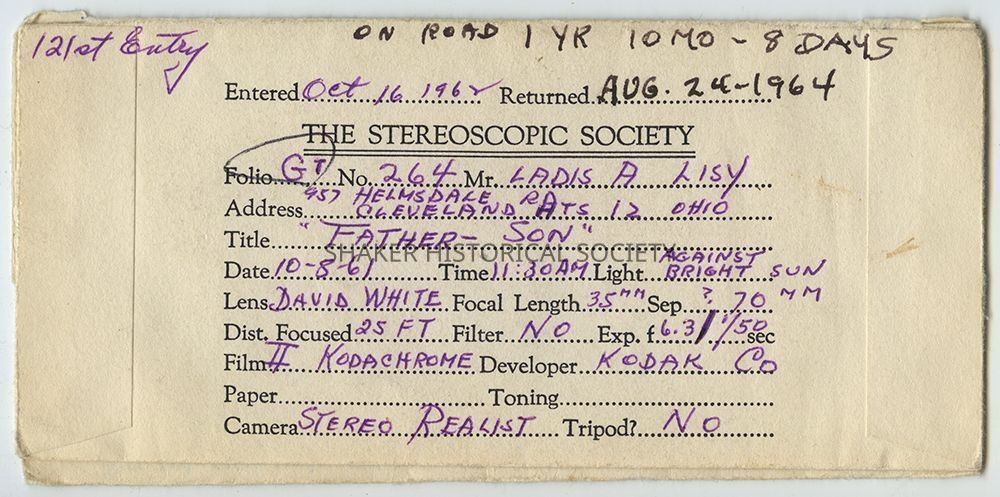 121st Entry
ON ROAD 1 YR 10 MO - 8 DAYS
Entered Oct 16 1962 Returned AUG. 24-1964
THE STEREOSCOPIC SOCIETY
Folio GT No. 264 Mr. LADIS A LISY
957 HELMSDALE RD
Address CLEVELAND HTS 12 OHIO
Title "FATHER- SON"
SHAKER HISTORICAL SOCIETY
AGAINST
Date 10-8-61 Time 11:30AM Light BRIGHT SUN
Lens DAVID WHITE Focal Length 35MM Sep. ? 70 MM
Dist. Focused 25 FT Filter NO Exp. f. 6.3 / 1/50 sec
Film II KODACHROME Developer KODAK Co
Paper Toning
Camera STEREO REALIST Tripod? NO